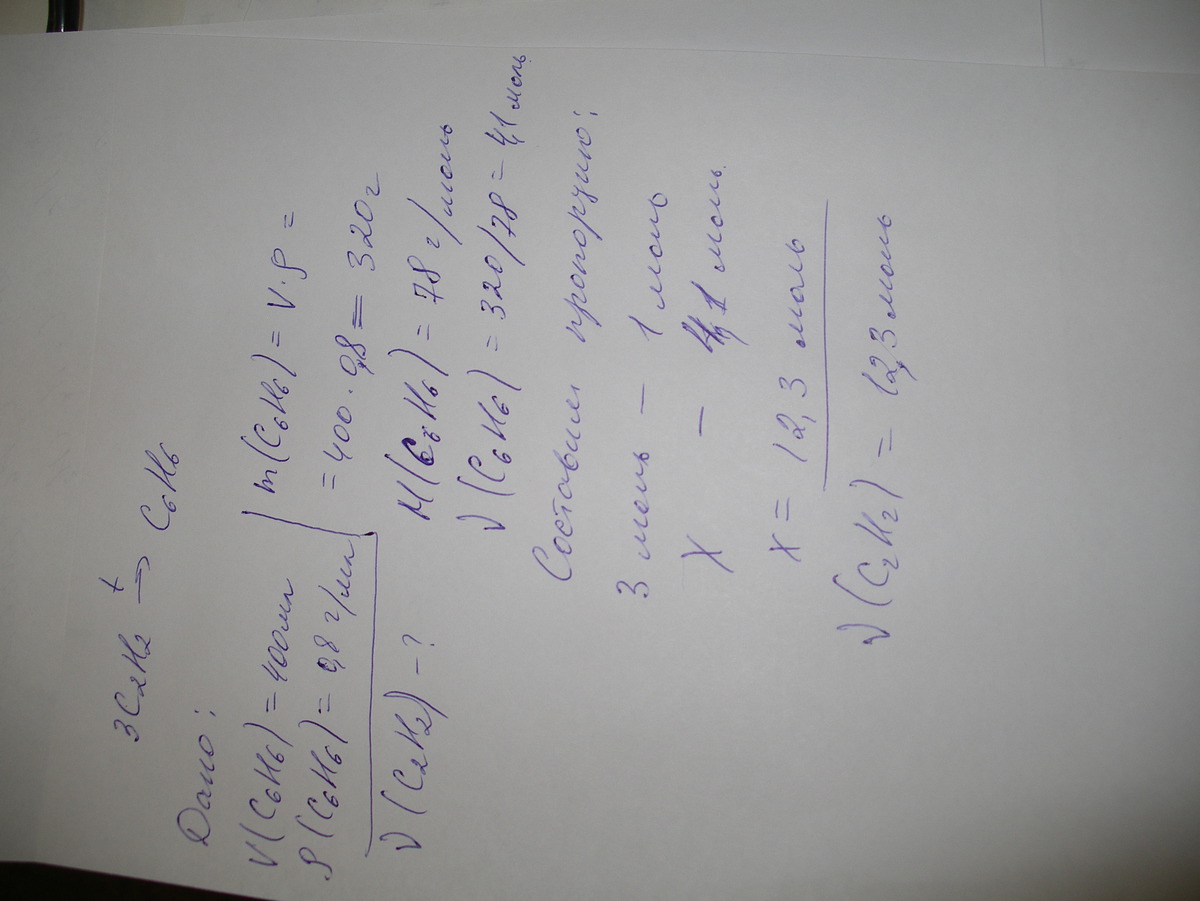 3C₂H₂ t→ C₆H₆
Дано:
V(C₆H₆) = 400мл
ρ(C₆H₆) = 0,8 г/мл
ν(C₂H₂) - ?
m(C₆H₆) = V·ρ =
= 400·0,8 = 320г
M(C₆H₆) = 78 г/моль
ν(C₆H₆) = 320/78 = 4,1 моль
Составим пропорцию:
3 моль – 1 моль
X – 4,1 моль
x = 12,3 моль
ν(C₂H₂) = 12,3 моль